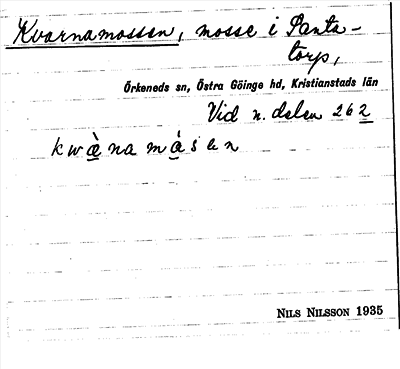 Kvarnamossen, mosse i Santa-
torp,
Örkeneds sn, Östra Göinge hd, Kristianstads län
Vid n. delen 262
kwæ̀namásen
NILS NILSSON 1935